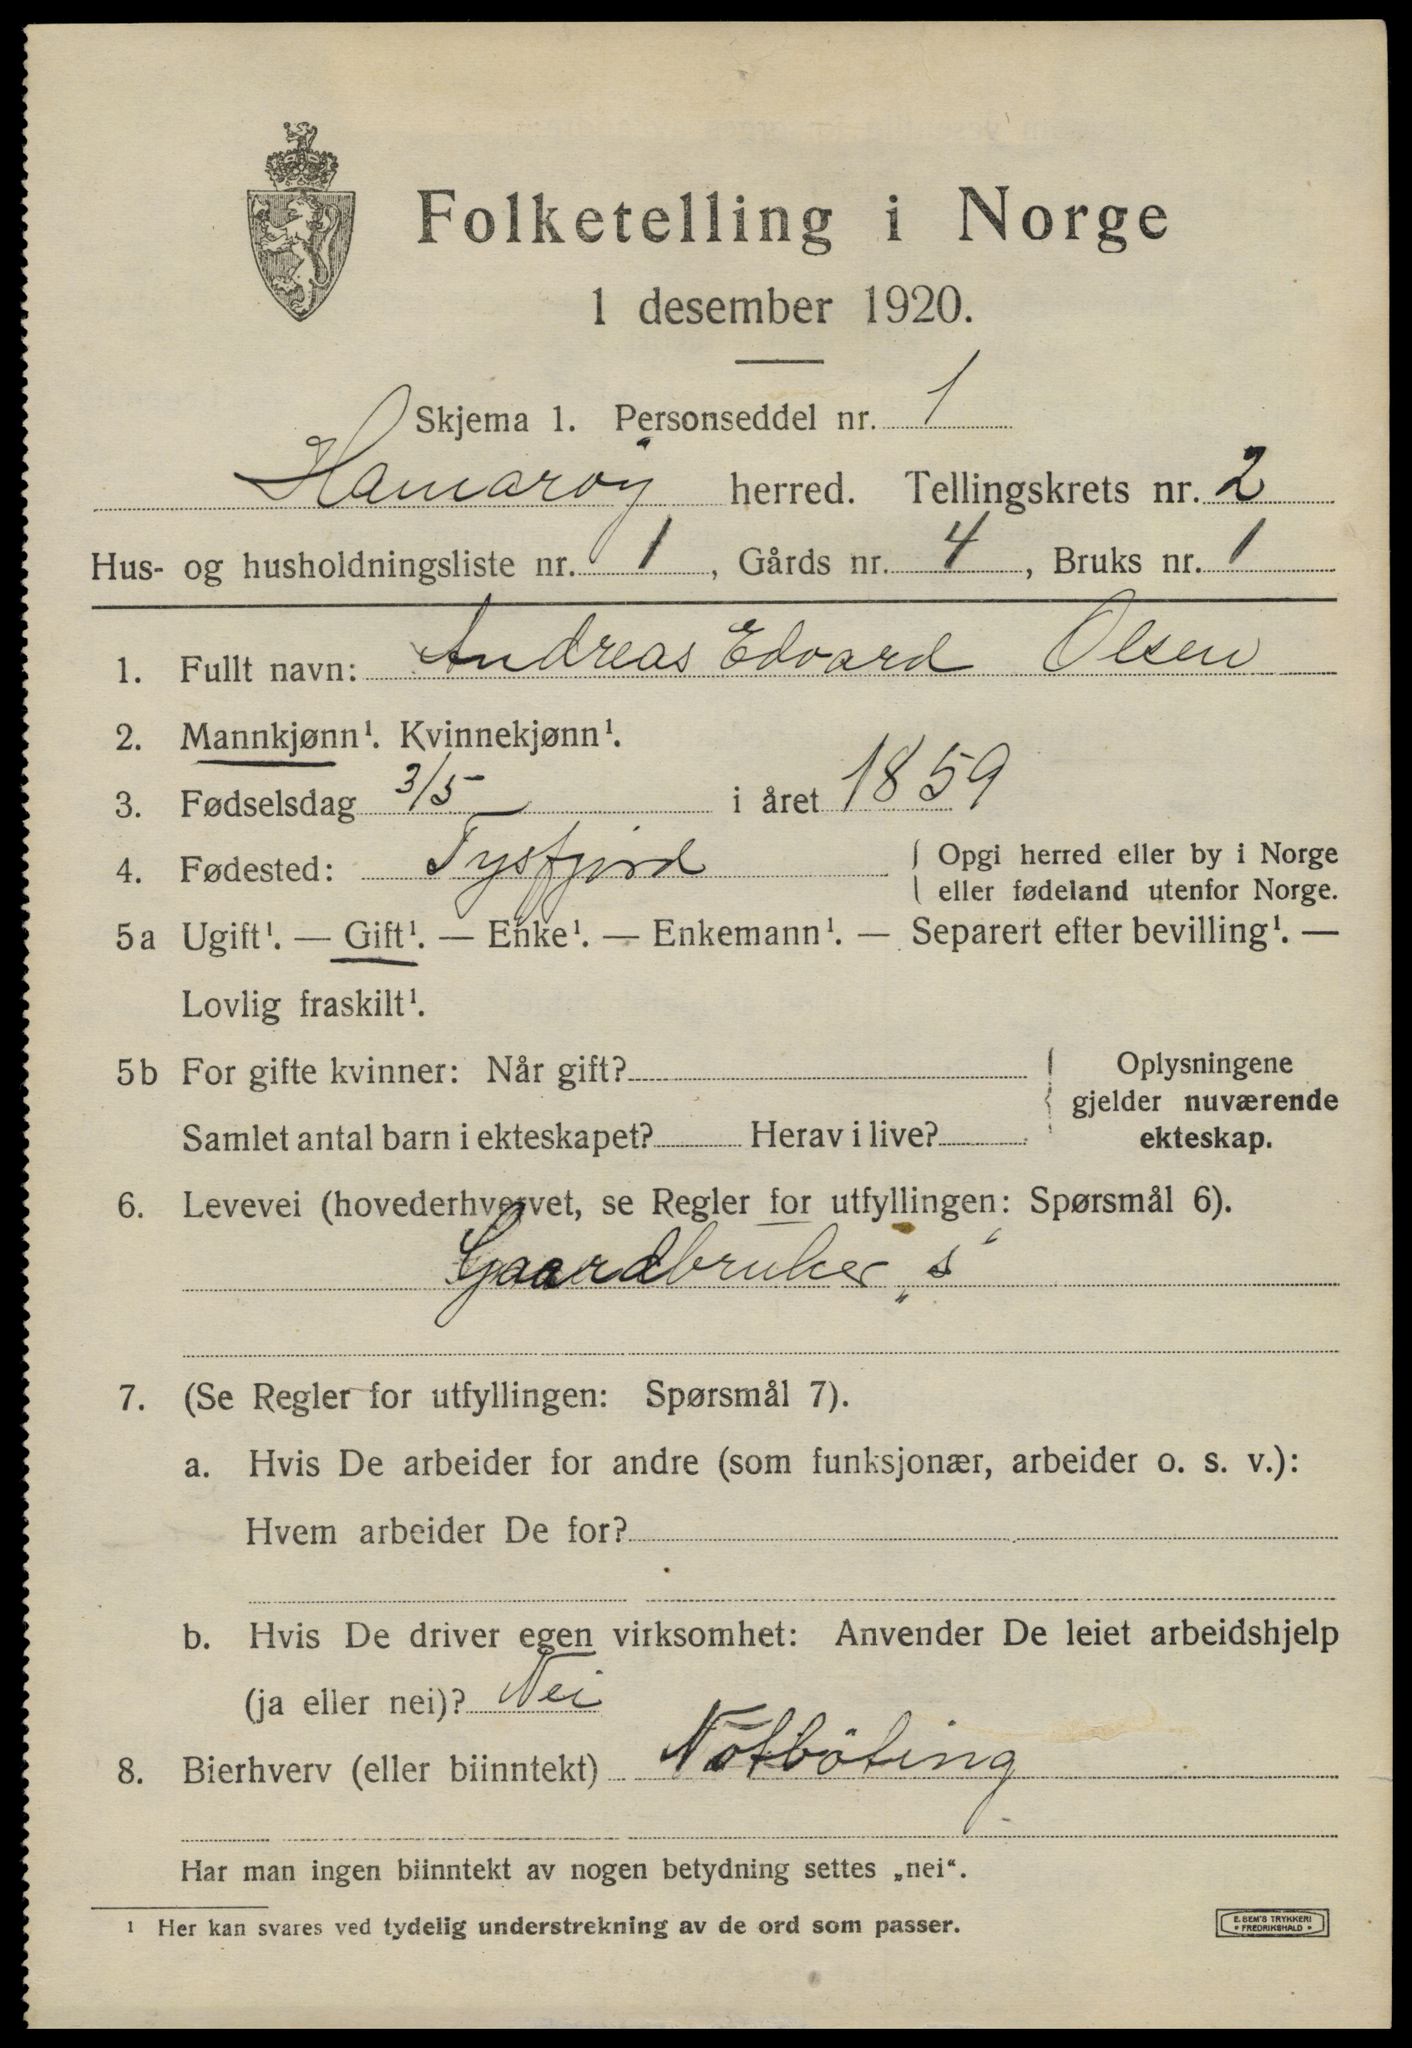 Folketelling i Norge
1 desember 1920.
Skjema 1. Personseddel nr. 1
Hamarøy herred. Tellingskrets nr. 2
Hus- og husholdningsliste nr. 1, Gårds nr. 4, Bruks nr. 1
1. Fullt navn: Andreas Edvard Olsen
2. Mannkjønn¹. Kvinnekjønn¹.
3. Fødselsdag 3/5 i året 1859
4. Fødested: Tysfjord { Opgi herred eller by i Norge
eller fødeland utenfor Norge.
5a Ugift¹. — Gift¹. — Enke¹. — Enkemann¹. — Separert efter bevilling¹. —
Lovlig fraskilt¹.
5b For gifte kvinner: Når gift? { Oplysningene
gjelder nuværende
Samlet antal barn i ekteskapet? Herav i live? ekteskap.
6. Levevei (hovederhvervet, se Regler for utfyllingen: Spørsmål 6).
Gaardbruker „s“
7. (Se Regler for utfyllingen: Spørsmål 7).
a. Hvis De arbeider for andre (som funksjonær, arbeider o. s. v.):
Hvem arbeider De for?
b. Hvis De driver egen virksomhet: Anvender De leiet arbeidshjelp
(ja eller nei)? Nei
8. Bierhverv (eller biinntekt) Notbøting
Har man ingen biinntekt av nogen betydning settes „nei“.
¹ Her kan svares ved tydelig understrekning av de ord som passer.
E. SEM'S TRYKKERI
* FREDRIKSHALD *